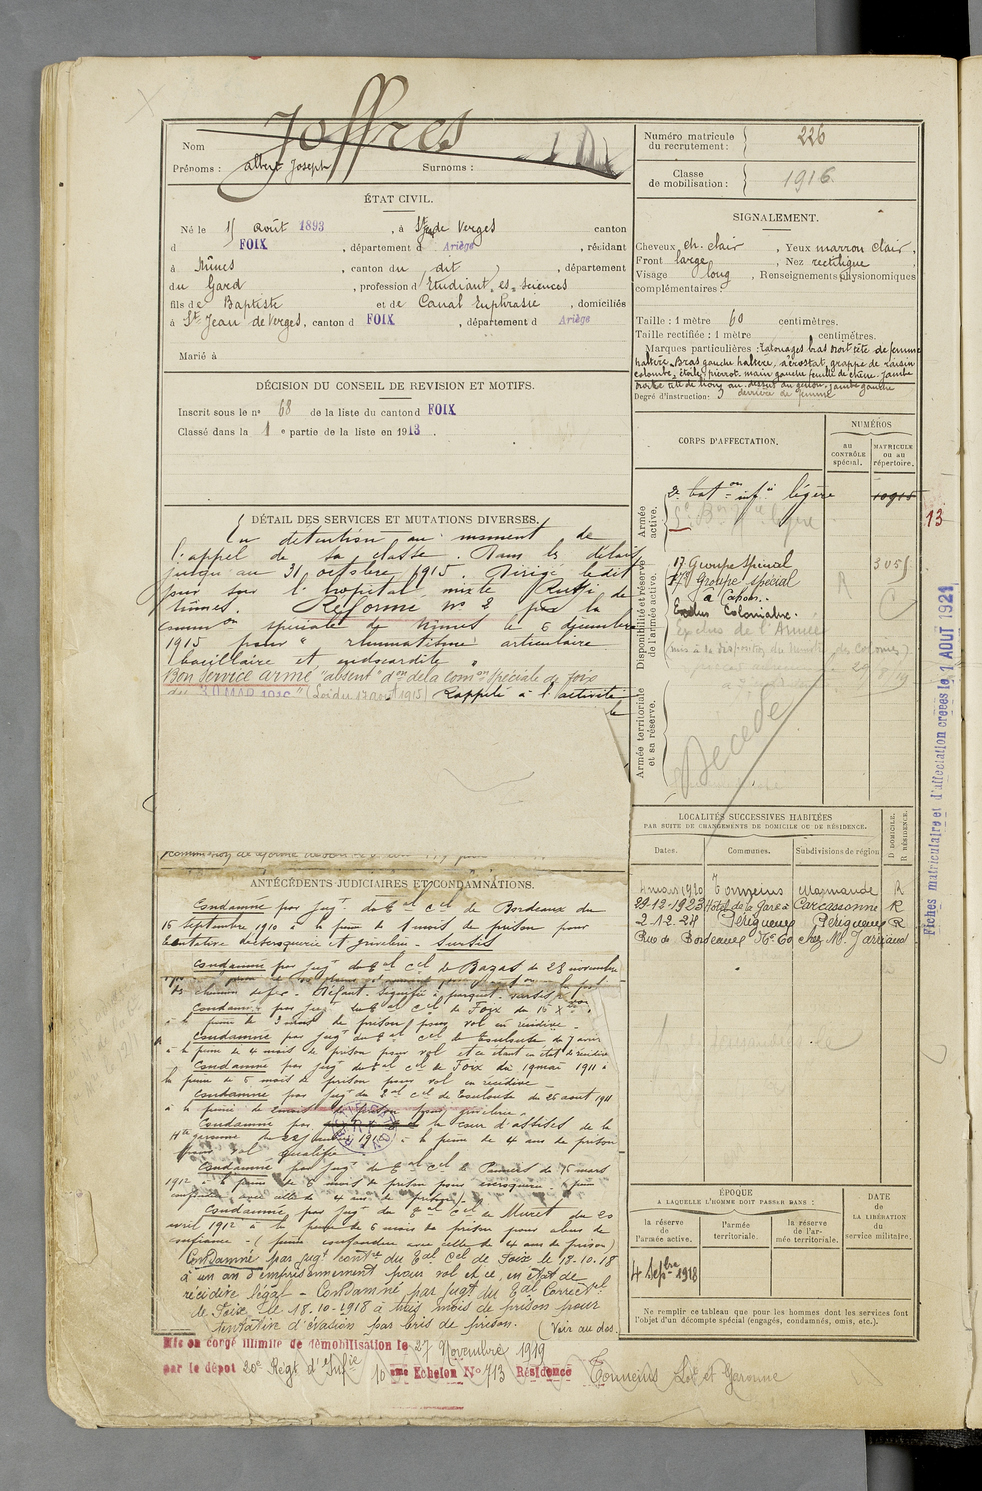 Joffres
Nom
Prénoms : Albert Joseph Surnoms :
ÉTAT CIVIL.
Né le 15 août 1893, à St Jean de Verges canton
d FOIX, département d Ariège, résidant
à Nîmes, canton du dit, département
du Gard, profession d Etudiant es-sciences
fils de Baptiste et de Canal Euphrasie, domiciliés
à St Jean de Verges, canton d FOIX, département d Ariège
Marié à
DÉCISION DU CONSEIL DE REVISION ET MOTIFS.
Inscrit sous le n° 68 de la liste du canton d FOIX
Classé dans la 1e partie de la liste en 1913.
DÉTAIL DES SERVICES ET MUTATIONS DIVERSES.
En detention au moment de
l'appel de sa classe. Dans les délais
jusqu'au 31 octobre 1915. Dirigé ledit
jour sur l'hopital mixte Ruffi de
Nîmes. Réformé n° 2 par la
Common spéciale de Nimes le 6 décembre
1915 pour "rhumatisme articulaire
bacillaire et endocardite"
Bon service armé "absent" don de la Comon Spéciale de Foix
du 30 MAR 1916 (Loi du 17 août 1915) Rappelé à l'activité
le
ANTÉCÉDENTS JUDICIAIRES ET CONDAMNATIONS.
Condamné par jugt du Tal Cel de Bordeaux du
16 Septembre 1910 à la peine de 1 mois de prison pour
tentative d'escroquerie et grivelerie - Sursis
Condamné par jugt du Tal Cel de Bazas du 23 novembre
des chemins de fer. Défaut. Signifié à parquet.
Condamné par jugt du Tal Cel de Foix du 16 Xbre
à la peine de 3 mois de prison pour vol en récidive.
Condamné par jugt du Tal Cel de Toulouse du 7 avril
à la peine de 4 mois de prison pour vol et ce étant en état de récidive
Condamné par jugt du Tal Cel de Foix du 19 mai 1911 à
la peine de 6 mois de prison pour vol en récidive
Condamné par jugt du Tal Cel de Toulouse du 26 août 1911
à la peine de 2 mois de prison pour grivelerie.
Condamné par la cour d'assises de la
Hte Garonne du 1912 à la peine de 4 ans de prison
pour vol qualifié
Condamné par jugt du Tal Cel de Pamiers du 15 mars
1912 à la peine de 6 mois de prison pour escroquerie (peine
confondue avec celle de 4 ans de prison)
Condamné par jugt du Tal Cel de Muret du 20
avril 1912 à la peine de 6 mois de prison pour abus de
confiance. (peine confondue avec celle de 4 ans de prison)
Condamné par jugt contre du Tal Cel de Foix le 18.10.18
à un an d'emprisonnement pour vol et ce, en état de
récidive légal - Condamné par jugt du Tal Correctel
de Foix, le 18.10.1918 à trois mois de prison pour
tentative d'évasion par bris de prison. (Voir au dos)
Mis en congé illimité de démobilisation le 27 Novembre 1919
par le dépôt 20e Régt d'Infie 10 eme Echelon N° 713 Résidence Tonneins Lot et Garonne
Numéro matricule du recrutement : 226
Classe de mobilisation : 1916.
SIGNALEMENT.
Cheveux ch. clair, Yeux marron clair,
Front large, Nez rectiligne
Visage long, Renseignements physionomiques
complémentaires :
Taille : 1 mètre 60 centimètres.
Taille rectifiée : 1 mètre centimètres.
Marques particulières : Tatouages bras droit tête de femme
haltère. Bras gauche haltère, aérostat, grappe de raisin
colombe, étoile, pierrot. main gauche feuille de chêne. Jambe
droite tête de lion au-dessus du genou. jambe gauche
Degré d'instruction : 3 derrière de femme
CORPS D'AFFECTATION.
NUMÉROS
au CONTRÔLE spécial.
MATRICULE ou au répertoire.
Armée active.
2e baton infie légère 10915
13
Disponibilité et réserve de l'armée active.
17 Groupe spécial 305
17e Groupe spécial
à Cahors.
Exclus Coloniaux.
R
Exclus de l'Armée
(mis à la disposition du Ministre des Colonies)
Armée territoriale et sa réserve.
Décédé
Fiches matriculaire et d'affectation créées le 1 AOUT 1921
LOCALITÉS SUCCESSIVES HABITÉES
PAR SUITE DE CHANGEMENTS DE DOMICILE OU DE RÉSIDENCE.
Dates. Communes. Subdivisions de région D DOMICILE. R RÉSIDENCE.
4 mars 1920 Tonneins Marmande R
29-12-1923 Hôtel de la Gare à Carcassonne R
2.12.28 Périgueux Périgueux R
Rue de Bordeaux N° 60 chez M.
ÉPOQUE
A LAQUELLE L'HOMME DOIT PASSER DANS :
DATE DE LA LIBÉRATION du service militaire.
la réserve de l'armée active.
l'armée territoriale.
la réserve de l'armée territoriale.
4 Sepbre 1918
Ne remplir ce tableau que pour les hommes dont les services font
l'objet d'un décompte spécial (engagés, condamnés, omis, etc.).